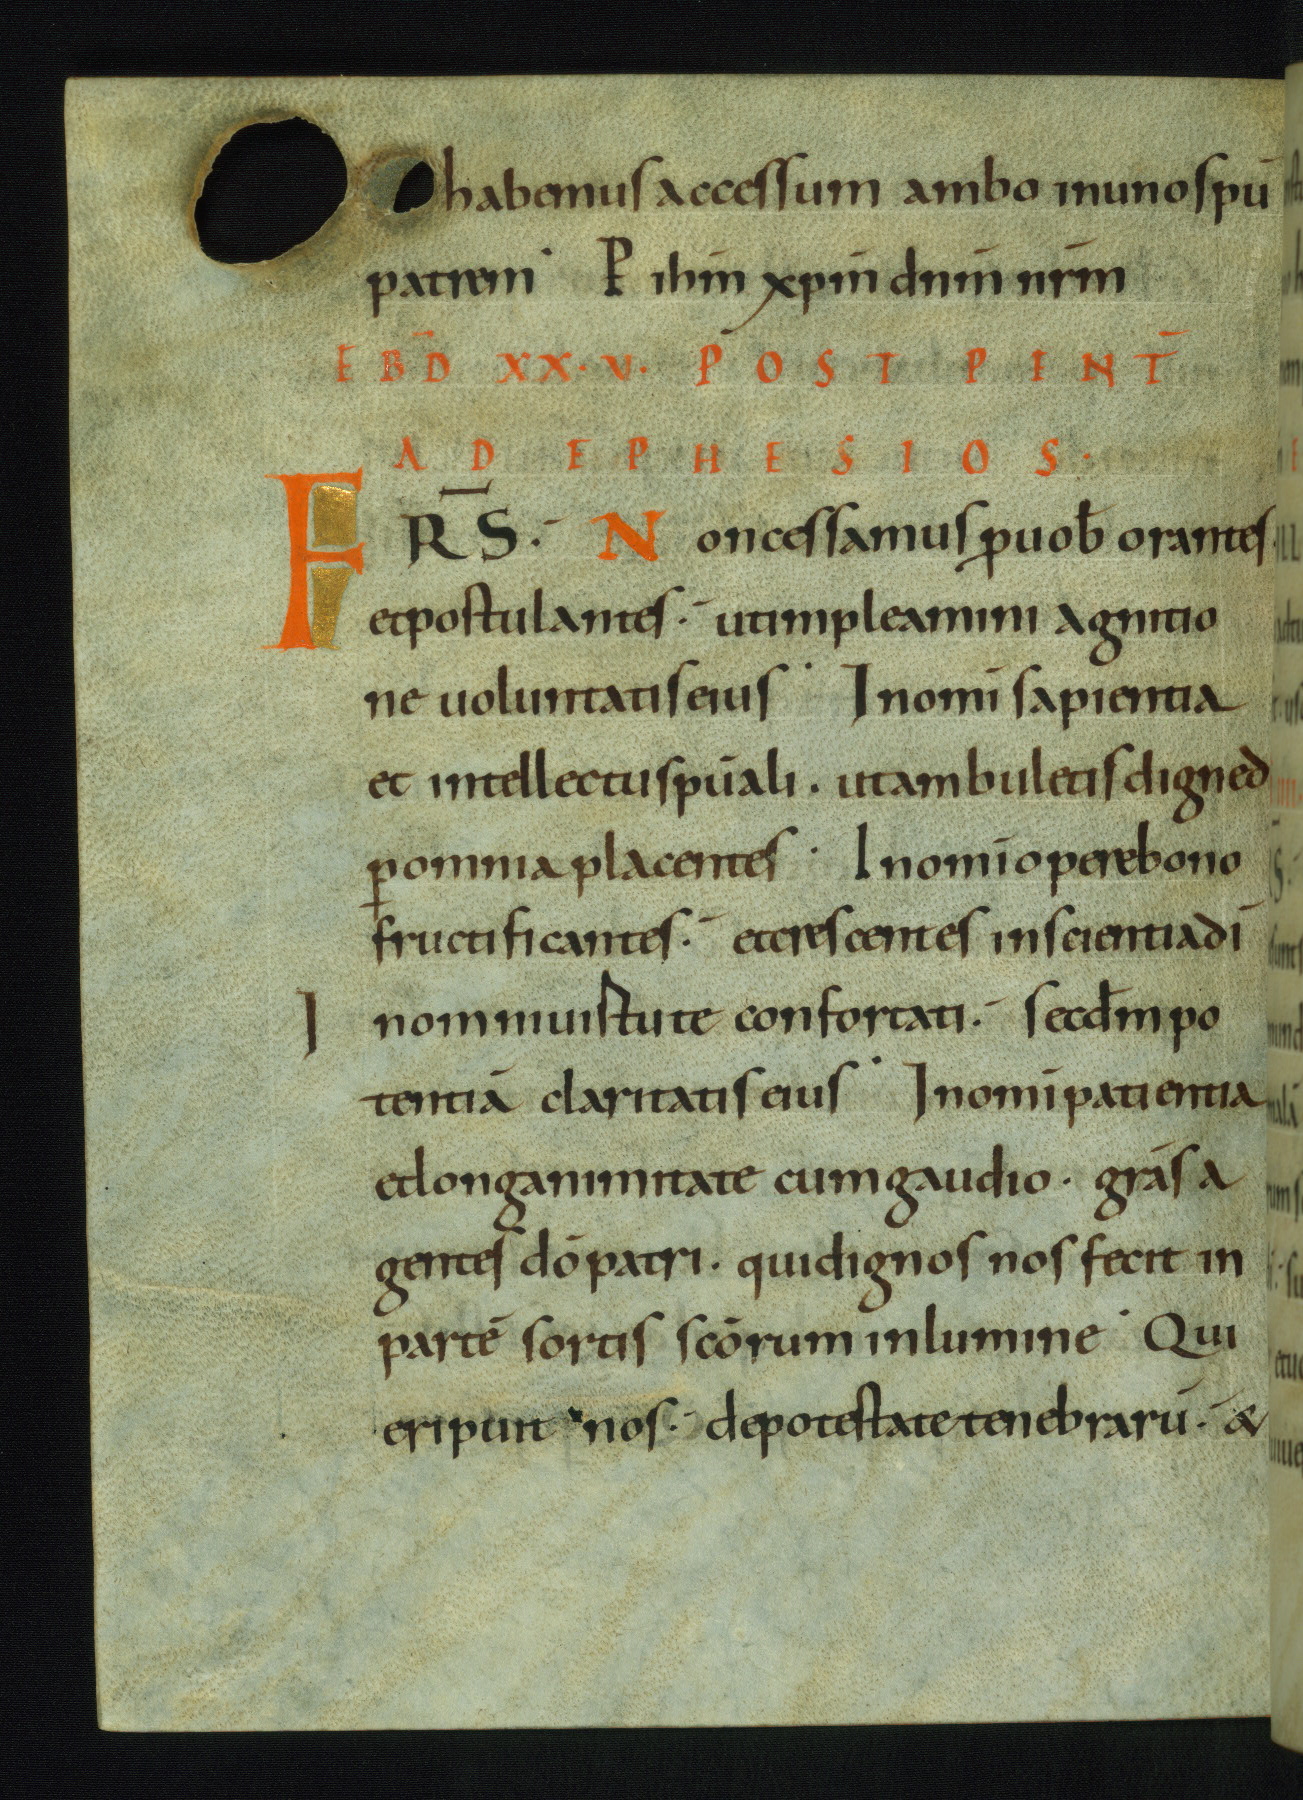 habemus accessum ambo in uno spū
patrem P ihm̄ xpm̄ dnm̄ nr̄m
EBD̄ XX·V· POST PENT̄
AD EPHESIOS·
FR̄S· Non cessamus p̱ uob̄ orantes·
et postulantes· ut impleamini agnitio
ne uoluntatis eius In omī sapientia
et intellectu spūali· ut ambuletis digne d̄
p̱ omnia placentes In omī opere bono
fructificantes· et crescentes in scientia dī
In omni uirtute confortati· secd̄m po
tentiā claritatis eius In omī patientia
et longanimitate cum gaudio· grās a
gentes dō patri· qui dignos nos fecit in
partē sortis scōrum in lumine Qui
eripuit nos· de potestate tenebrarū· &